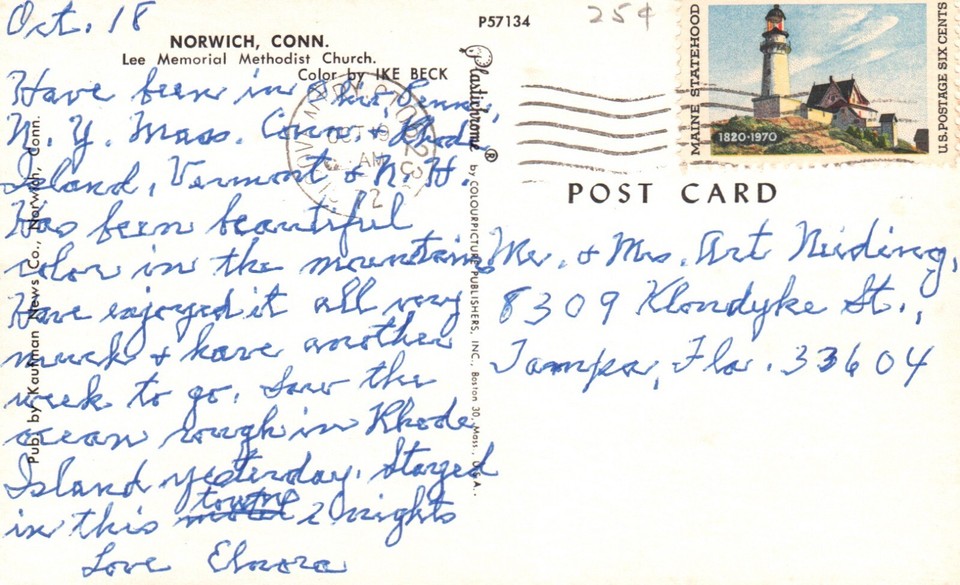 Oct. 18
P57134
25¢
NORWICH, CONN.
Lee Memorial Methodist Church.
Color by IKE BECK
Have been in Ohio, Penn.,
N. Y. Mass. Conn. & Rhode
Island, Vermont & N. H.
Has been beautiful
color in the mountains
Have enjoyed it all very
much & have another
week to go. Saw the
ocean rough in Rhode
Island yesterday. Stayed
in this towne 2 nights
Love Elnora
Pub. by Kaufman News Co., Norwich, Conn.
Plastichrome ® by COLOURPICTURE PUBLISHERS, INC., Boston 30, Mass., U.S.A.
MAINE STATEHOOD
1820-1970
U.S. POSTAGE SIX CENTS
POST CARD
Mr. & Mrs. Art Nieding,
8309 Klondyke St.,
Tampa, Fla. 33604
AM